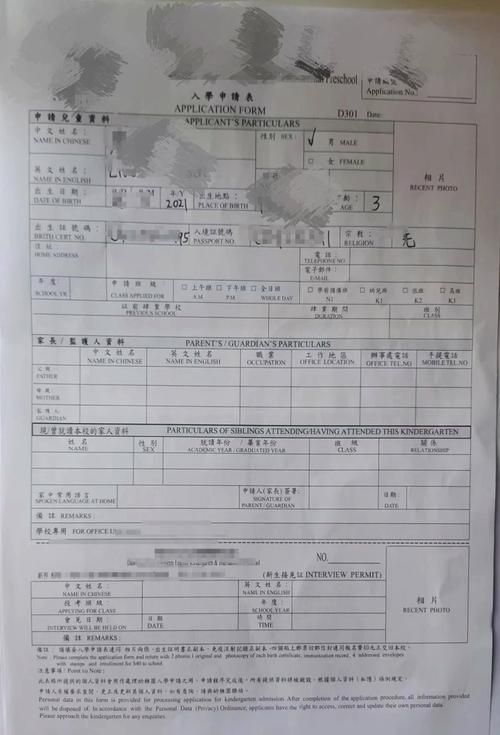 Preschool
申請編號
Application No.
入學申請表
APPLICATION FORM
D301 Date:
申請兒童資料 APPLICANT'S PARTICULARS
中文姓名: 性別 SEX: ✓ 男 MALE
NAME IN CHINESE □ 女 FEMALE
相片
RECENT PHOTO
英文姓名:
NAME IN ENGLISH
出生日期: 年Y 出生地點: 年齡: 3
DATE OF BIRTH 2021 PLACE OF BIRTH AGE
出世証號碼: 95 入境証號碼 宗教:
BRITH CERT. NO. PASSPORT NO. RELIGION
住址: 電話:
HOME ADDRESS TELEPHONE NO
電子郵件:
E-MAIL
年度: 申請班級: □ 上午班 □ 下午班 □ 全日班 □ □ 幼兒班 □ 低班 □ 高班
SCHOOL YR CLASS APPLIED FOR A.M. P.M. WHOLE DAY N1 K1 K2 K3
以前肄業學校 肄業期間 班別
PREVIOUS SCHOOL DURATION CLASS
家長/監護人資料 PARENT'S / GUARDIAN'S PARTICULARS
中文姓名 英文姓名 職業 工作地區 辦事處電話 手提電話
NAME IN CHINESE NAME IN ENGLISH OCCUPATION OFFICE LOCATION OFFICE TEL.NO MOBILE TEL.NO
父親
FATHER
母親
MOTHER
監護人
GUARDIAN
現/曾就讀本校的家人資料 PARTICULARS OF SIBLINGS ATTENDING/HAVING ATTENDED THIS KINDERGARTEN
姓名 性別 就讀年份 / 畢業年份 班級 關係
NAME SEX ACADEMIC YEAR / GRADUATED YEAR CLASS RELATIONSHIP
家中常用語言 申請人(家長)簽署: 日期:
SPOKEN LANGUAGE AT HOME SIGNATURE OF DATE
PARENT / GUARDIAN
備註 REMARKS:
學校專用 FOR OFFICE U
NO.
(新生接見証 INTERVIEW PERMIT)
中文姓名: 英文姓名:
NAME IN CHINESE NAME IN ENGLISH
投考班級: 年度:
APPLYING FOR CLASS SCHOOL YEAR
會見日期: 日期 時間
INTERVIEW WILL BE HELD ON DATE TIME
備註 REMARKS:
相片
RECENT PHOTO
Note: Please complete the application form and return with 2 photos,1 original and photocopy of each birth certificate, immunization record, 4 addressed envelopes
with stamps and enrollment fee $40 to school.
注意事項: Point to Note:
Personal data in this form is provided for processing application for kindergarten admission. After completion of the application procedure, all information provided
will be disposed of. In accordance with the Personal Data (Privacy) Ordinance, applicants have the right to access, correct and update their own personal data.
Please approach the kindergarten for any enquiries.